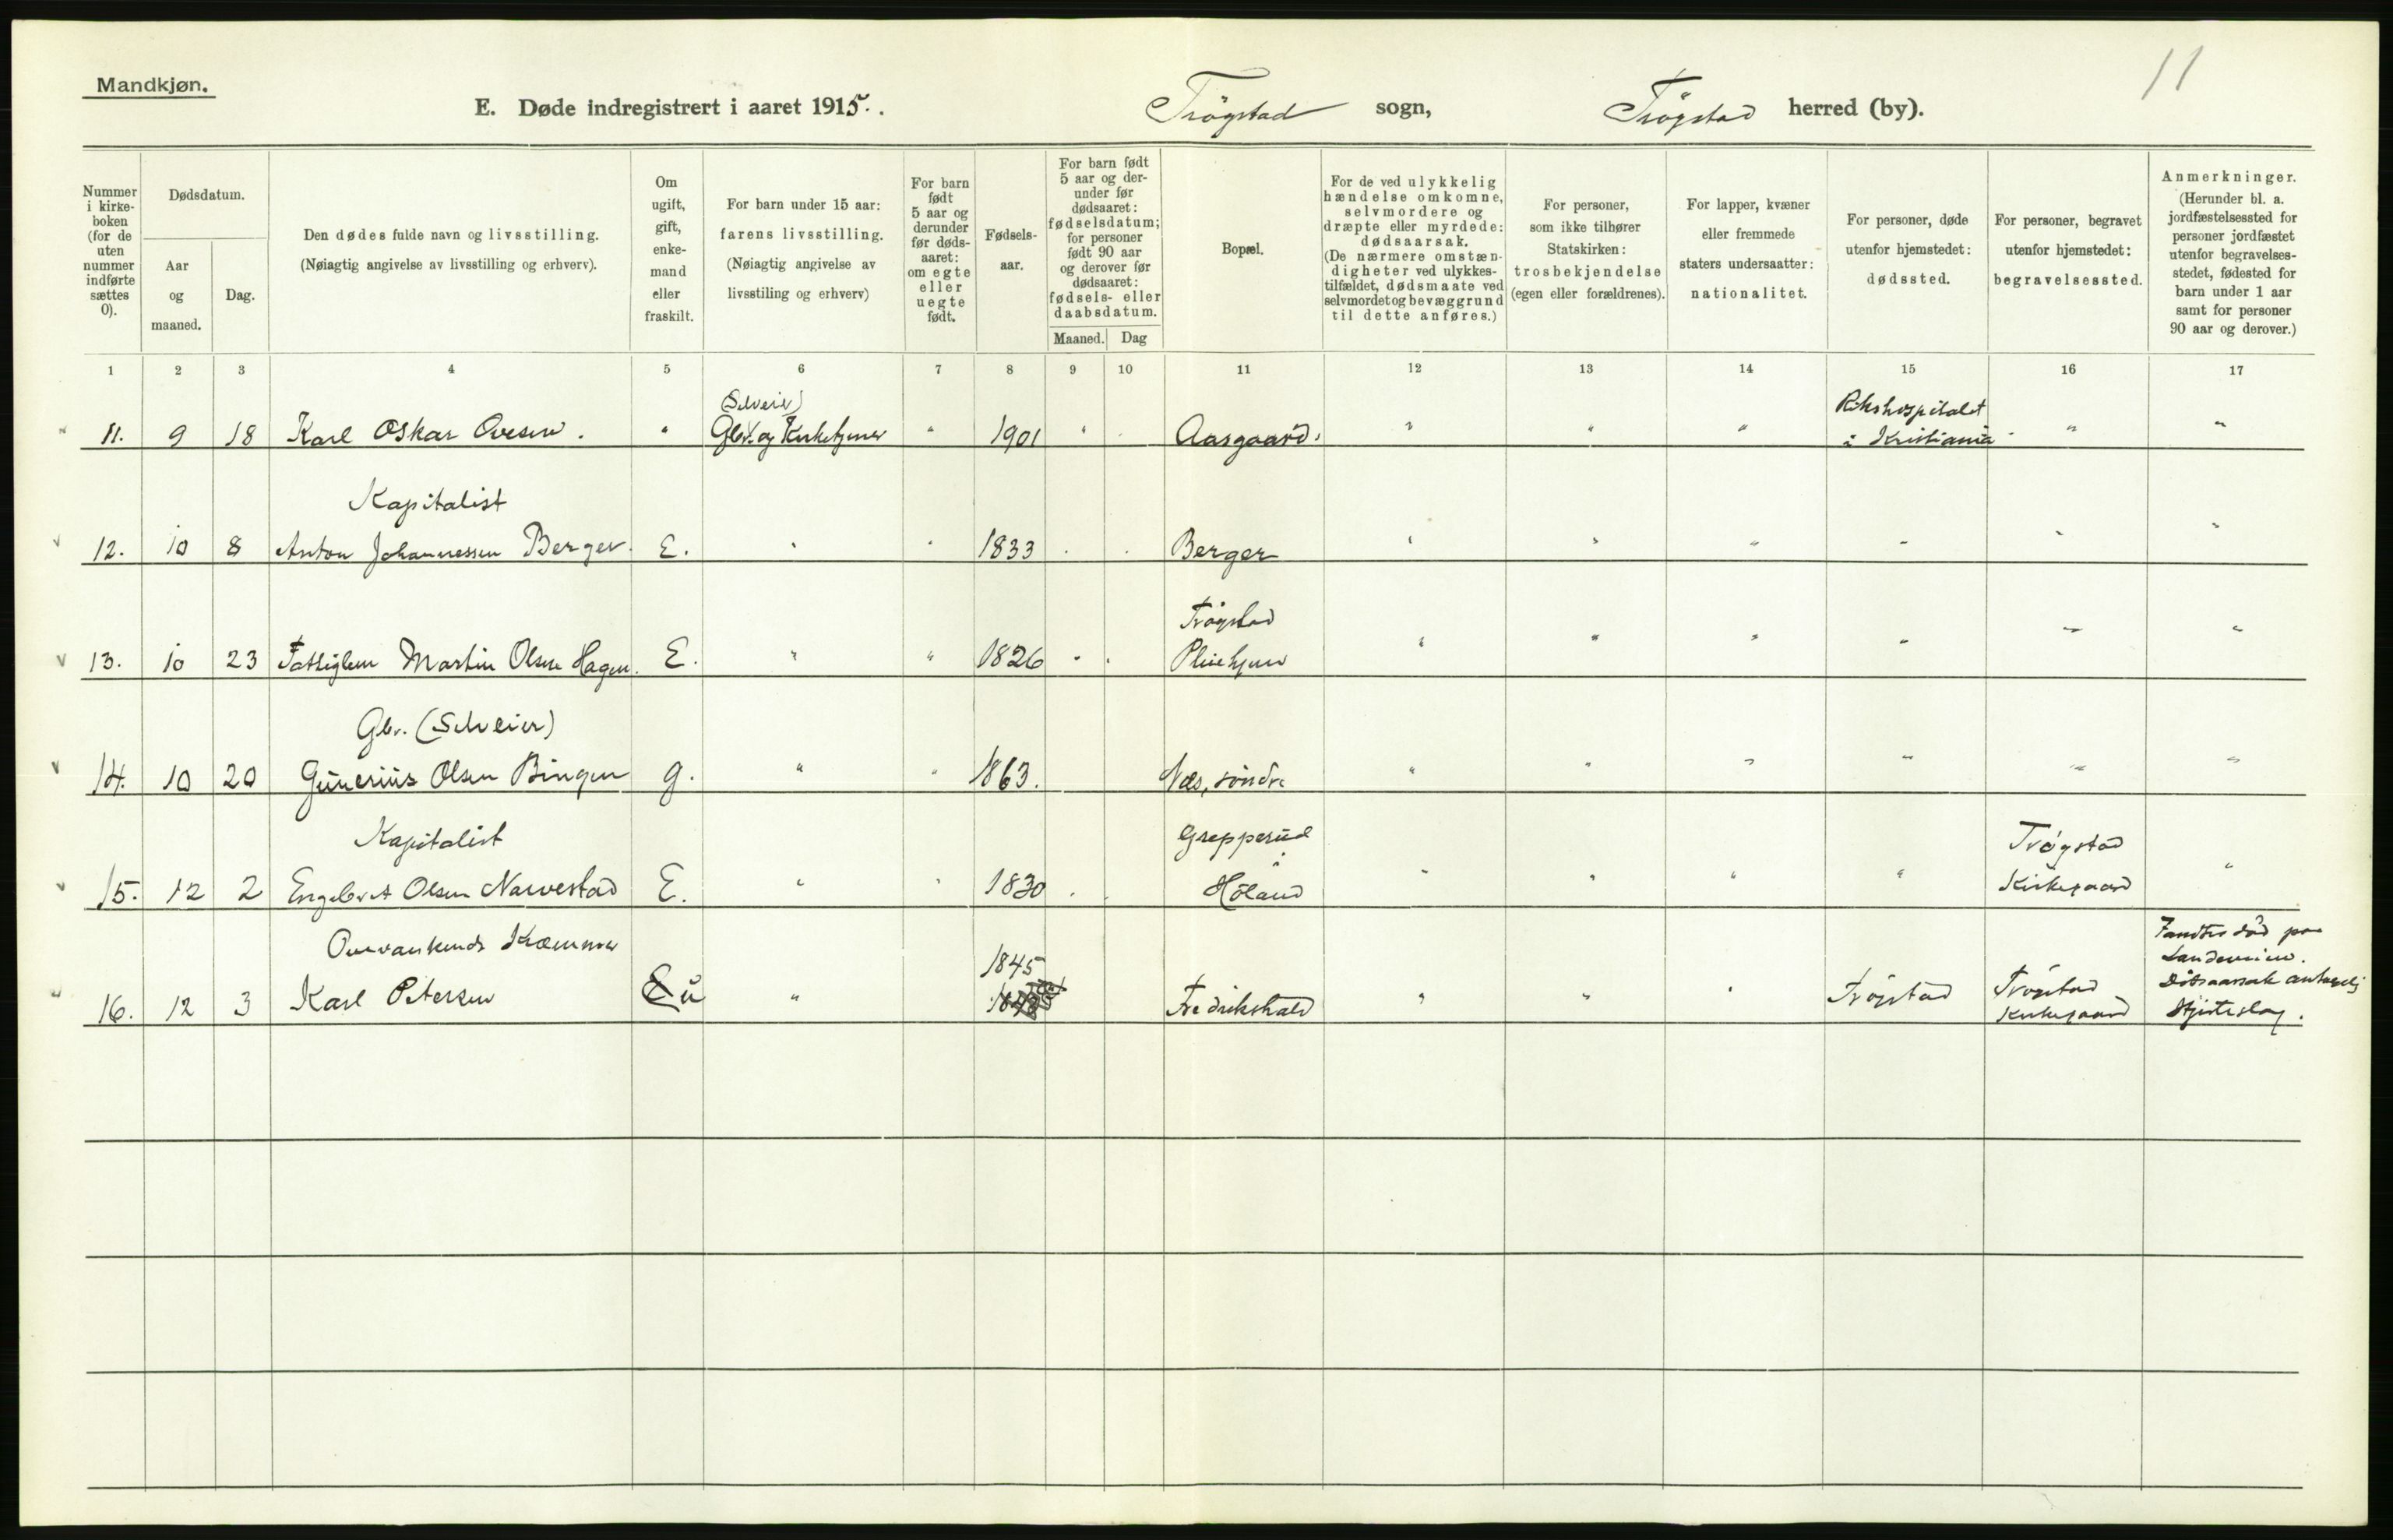 11
Mandkjøn.
E. Døde indregistrert i aaret 1915. .
Trögstad sogn,
Trögstad herred (by).
Nummer
i kirke-
boken
(for de
uten
nummer
indførte
sættes
0).
Dødsdatum.
Aar
og
maaned.
Dag.
Den dødes fulde navn og livsstilling.
(Nøiagtig angivelse av livsstilling og erhverv).
Om
ugift,
gift,
enke-
mand
eller
fraskilt.
For barn under 15 aar:
farens livsstilling.
(Nøiagtig angivelse av
livsstiling og erhverv)
For barn
født
5 aar og
derunder
før døds-
aaret:
om egte
eller
uegte
født.
Fødsels-
aar.
For barn født
5 aar og der-
under før
dødsaaret:
fødselsdatum;
for personer
født 90 aar
og derover før
dødsaaret:
fødsels- eller
daabsdatum.
Maaned. Dag
Bopæl.
For de ved ulykkelig
hændelse omkomne,
selvmordere og
dræpte eller myrdede:
dødsaarsak.
(De nærmere omstæn-
digheter ved ulykkes-
tilfældet, dødsmaate ved
selvmordet og bevæggrund
til dette anføres.)
For personer,
som ikke tilhører
Statskirken:
trosbekjendelse
(egen eller forældrenes).
For lapper, kvæner
eller fremmede
staters undersaatter:
nationalitet.
For personer, døde
utenfor hjemstedet:
dødssted.
For personer, begravet
utenfor hjemstedet:
begravelsessted.
Anmerkninger.
(Herunder bl. a.
jordfæstelsessted for
personer jordfæstet
utenfor begravelses-
stedet, fødested for
barn under 1 aar
samt for personer
90 aar og derover.)
1 2 3 4 5 6 7 8 9 10 11 12 13 14 15 16 17
(Selveier) Rikshospitalet
11. 9 18 Karl Oskar Ovesen. " Gbr. og Kirketjener " 1901 " Aasgaard. " " " i Kristiania " "
Kapitalist
12. 10 8 Anton Johannessen Berger. E. " " 1833 Berger " " " " " "
Trögstad
13. 10 23 Fattiglem Martin Olsen Hagen. E. " " 1826 Pleiehjem " " " " " "
Gbr. (Selveier)
14. 10 20 Gunerius Olsen Bingen g. " " 1863. Næs, söndre " " " " " "
Kapitalist Grepperud Trögstad
i
15. 12 2 Engebret Olsen Narvestad E. " " 1830 Höland " " " " Kirkegaard "
Omvankende Kræmmer 1845 Fandtes död paa
Landeveien.
16. 12 3 Karl Petersen E u " Fredrikshald " " " Trögstad Trögstad Dödsaarsak antagelig
Kirkegaard Hjerteslag.